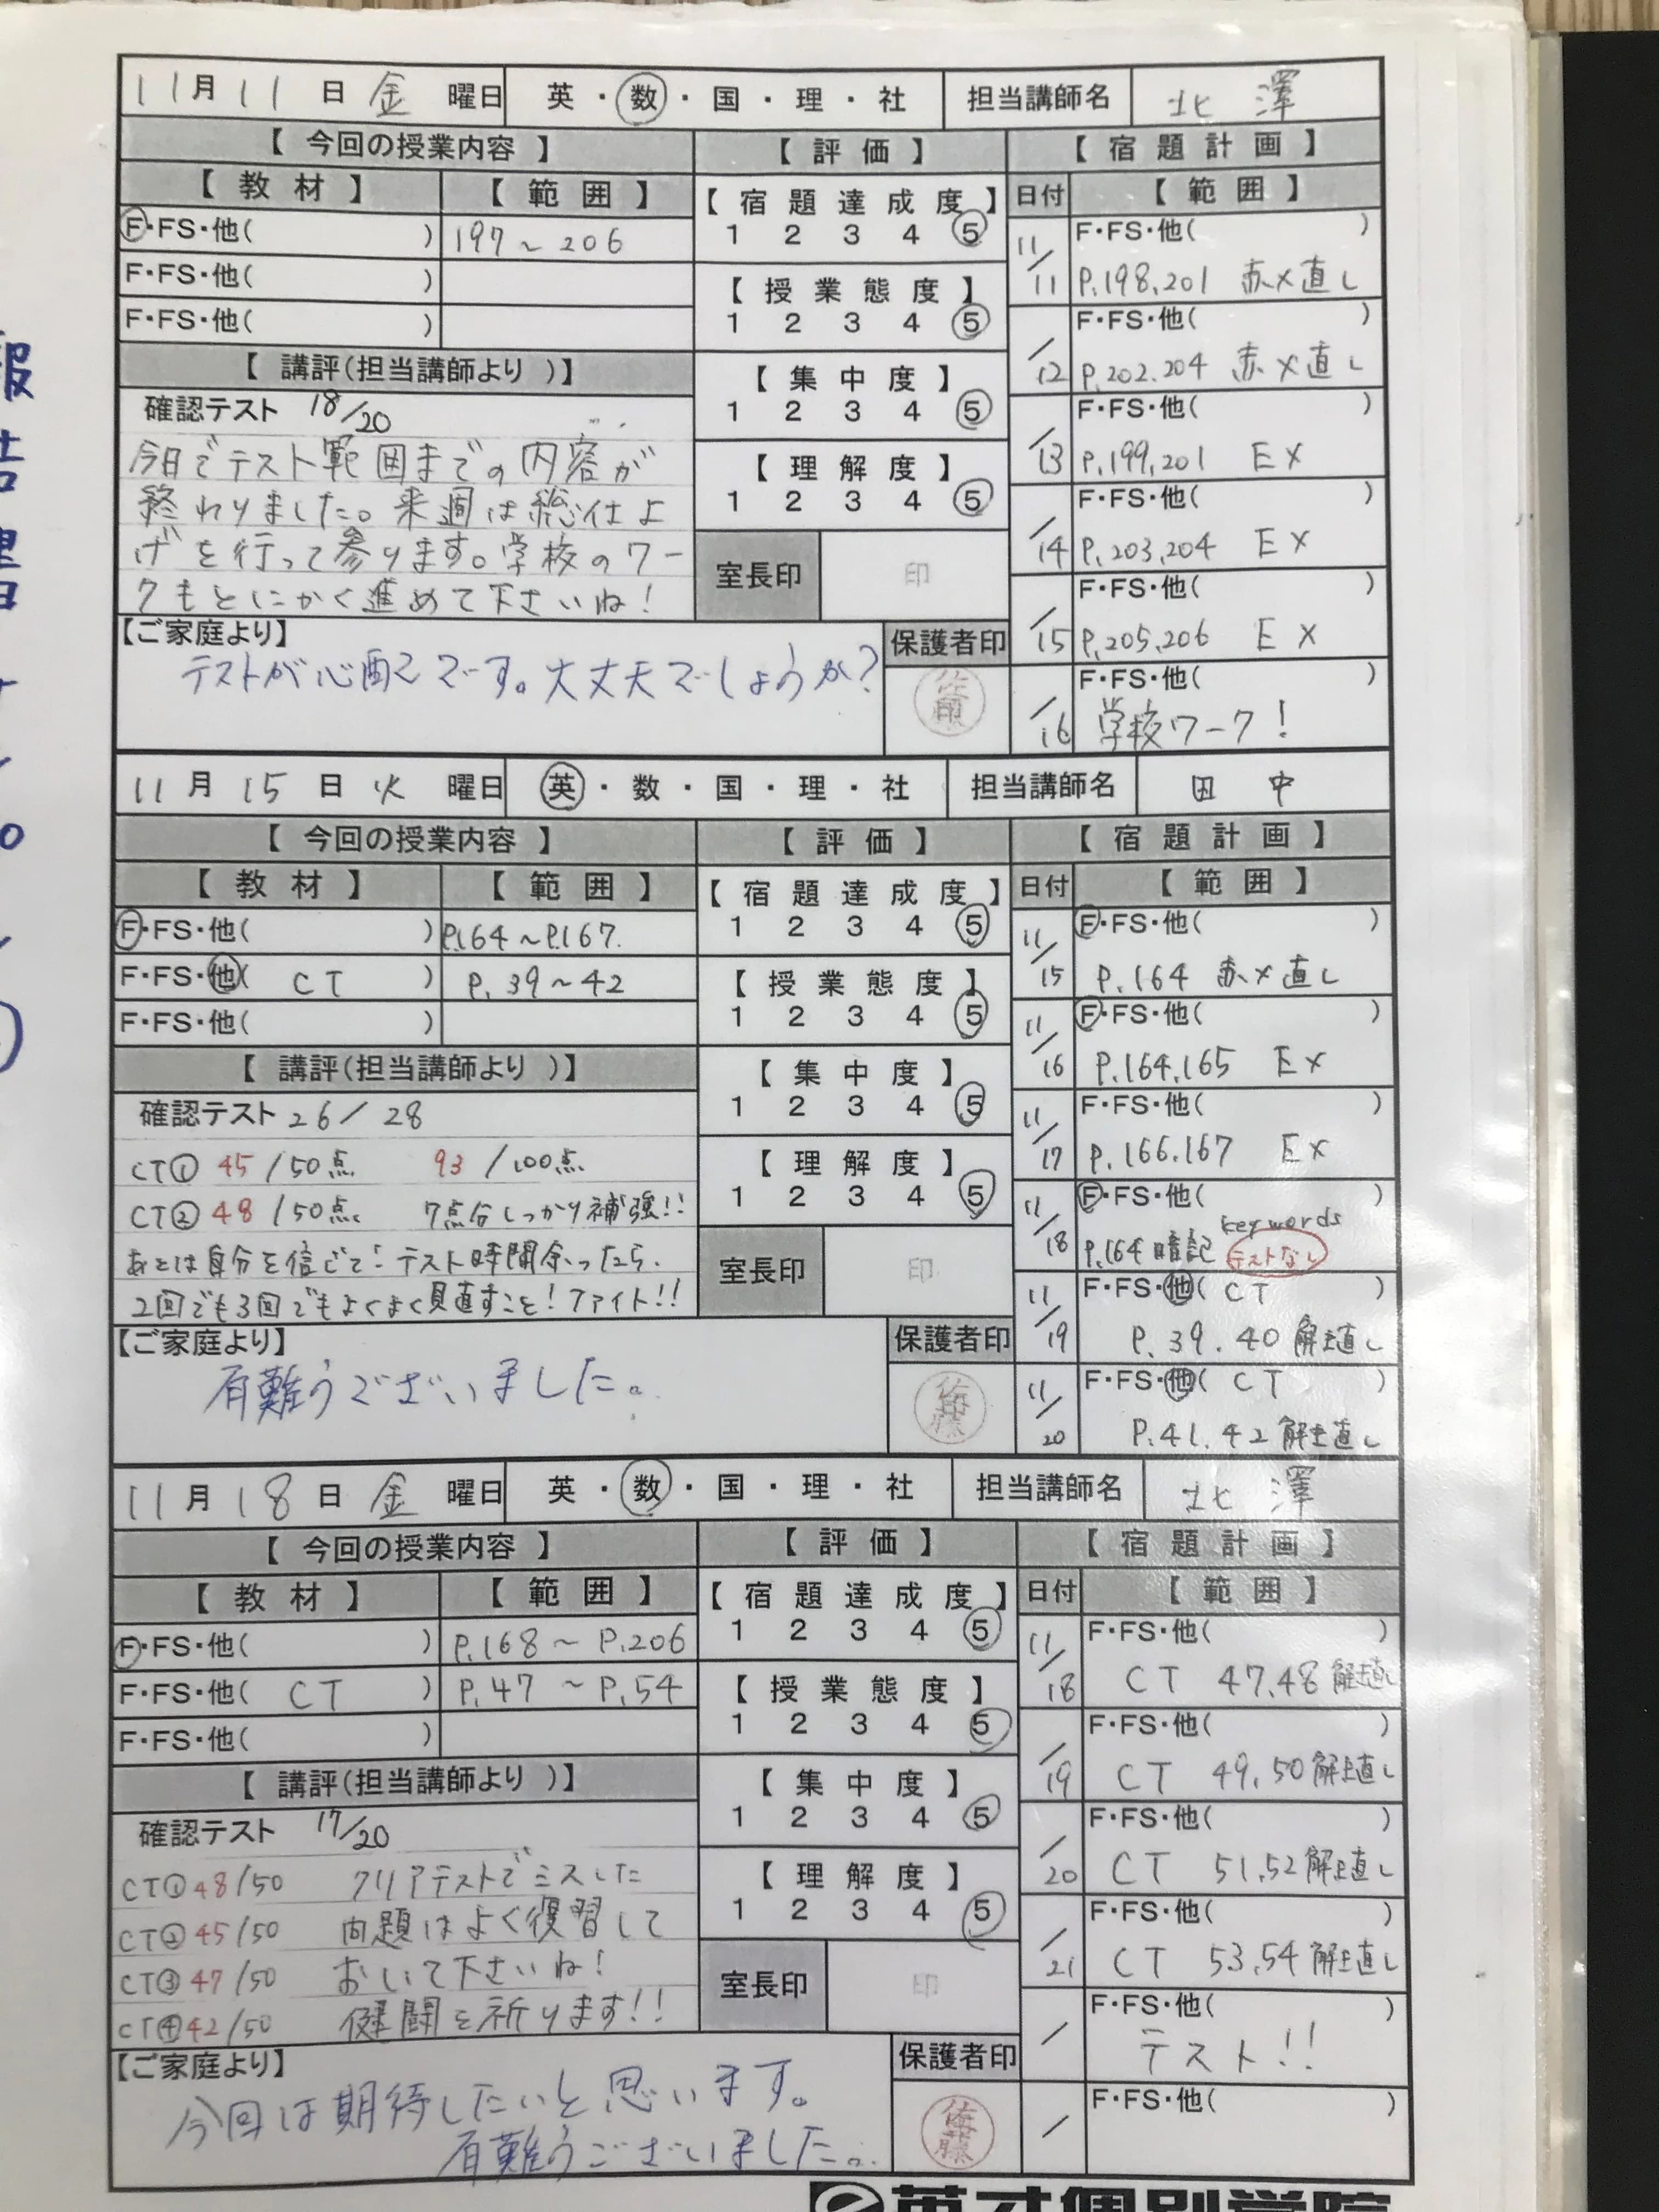 11月11日 金 曜日 英・数・国・理・社 担当講師名 北澤
【 今回の授業内容 】 【 評価 】 【 宿題計画 】
【 教材 】 【 範囲 】 【 宿題達成度 】 日付 【 範囲 】
F・FS・他( ) 197~206 1 2 3 4 5 11/11 F・FS・他( )
P.198,201 赤×直し
F・FS・他( ) 【 授業態度 】
F・FS・他( ) 1 2 3 4 5 /12 F・FS・他( )
P.202.204 赤×直し
【 講評(担当講師より )】 【 集中度 】
確認テスト 18/20 1 2 3 4 5 /13 F・FS・他( )
P.199,201 EX
今日でテスト範囲までの内容が
終わりました。来週は総仕上
げを行って参ります。学校のワー
クもとにかく進めて下さいね!
【 理解度 】
1 2 3 4 5 /14 F・FS・他( )
P.203,204 EX
室長印 印 /15 F・FS・他( )
P.205,206 EX
【ご家庭より】 保護者印
テストが心配です。大丈夫でしょうか?
/16 F・FS・他( )
学校ワーク!
11月15日 火 曜日 英・数・国・理・社 担当講師名 田中
【 今回の授業内容 】 【 評価 】 【 宿題計画 】
【 教材 】 【 範囲 】 【 宿題達成度 】 日付 【 範囲 】
F・FS・他( ) P.164~P.167. 1 2 3 4 5 11/15 F・FS・他( )
P.164 赤×直し
F・FS・他( CT ) P.39~42 【 授業態度 】
F・FS・他( ) 1 2 3 4 5 11/16 F・FS・他( )
P.164,165 EX
【 講評(担当講師より )】 【 集中度 】
確認テスト 26/28 1 2 3 4 5 11/17 F・FS・他( )
P.166.167 EX
CT① 45/50点 93/100点
CT② 48/50点、 7点分しっかり補強!!
あとは自分を信じて!テスト時間余ったら、
2回でも3回でもよくよく見直すこと!ファイト!!
【 理解度 】
1 2 3 4 5 11/18 F・FS・他( )
P.164 暗記 key words テストなし
室長印 印 11/19 F・FS・他( CT )
P.39.40 解き直し
【ご家庭より】 保護者印
有難うございました。
佐藤
11/20 F・FS・他( CT )
P.41.42 解き直し
11月18日 金 曜日 英・数・国・理・社 担当講師名 北澤
【 今回の授業内容 】 【 評価 】 【 宿題計画 】
【 教材 】 【 範囲 】 【 宿題達成度 】 日付 【 範囲 】
F・FS・他( ) P.168~P.206 1 2 3 4 5 11/18 F・FS・他( )
CT 47,48 解き直し
F・FS・他( CT ) P.47~P.54 【 授業態度 】
F・FS・他( ) 1 2 3 4 5 /19 F・FS・他( )
CT 49,50 解き直し
【 講評(担当講師より )】 【 集中度 】
確認テスト 17/20 1 2 3 4 5 /20 F・FS・他( )
CT 51,52 解き直し
CT① 48/50 クリアテストでミスした
CT② 45/50 問題はよく復習して
CT③ 47/50 おいて下さいね!
CT④ 42/50 健闘を祈ります!!
【 理解度 】
1 2 3 4 5 /21 F・FS・他( )
CT 53,54 解き直し
室長印 印 / F・FS・他( )
テスト!!
【ご家庭より】 保護者印
今回は期待したいと思います。
有難うございました。
佐藤
/ F・FS・他( )
英才個別学院